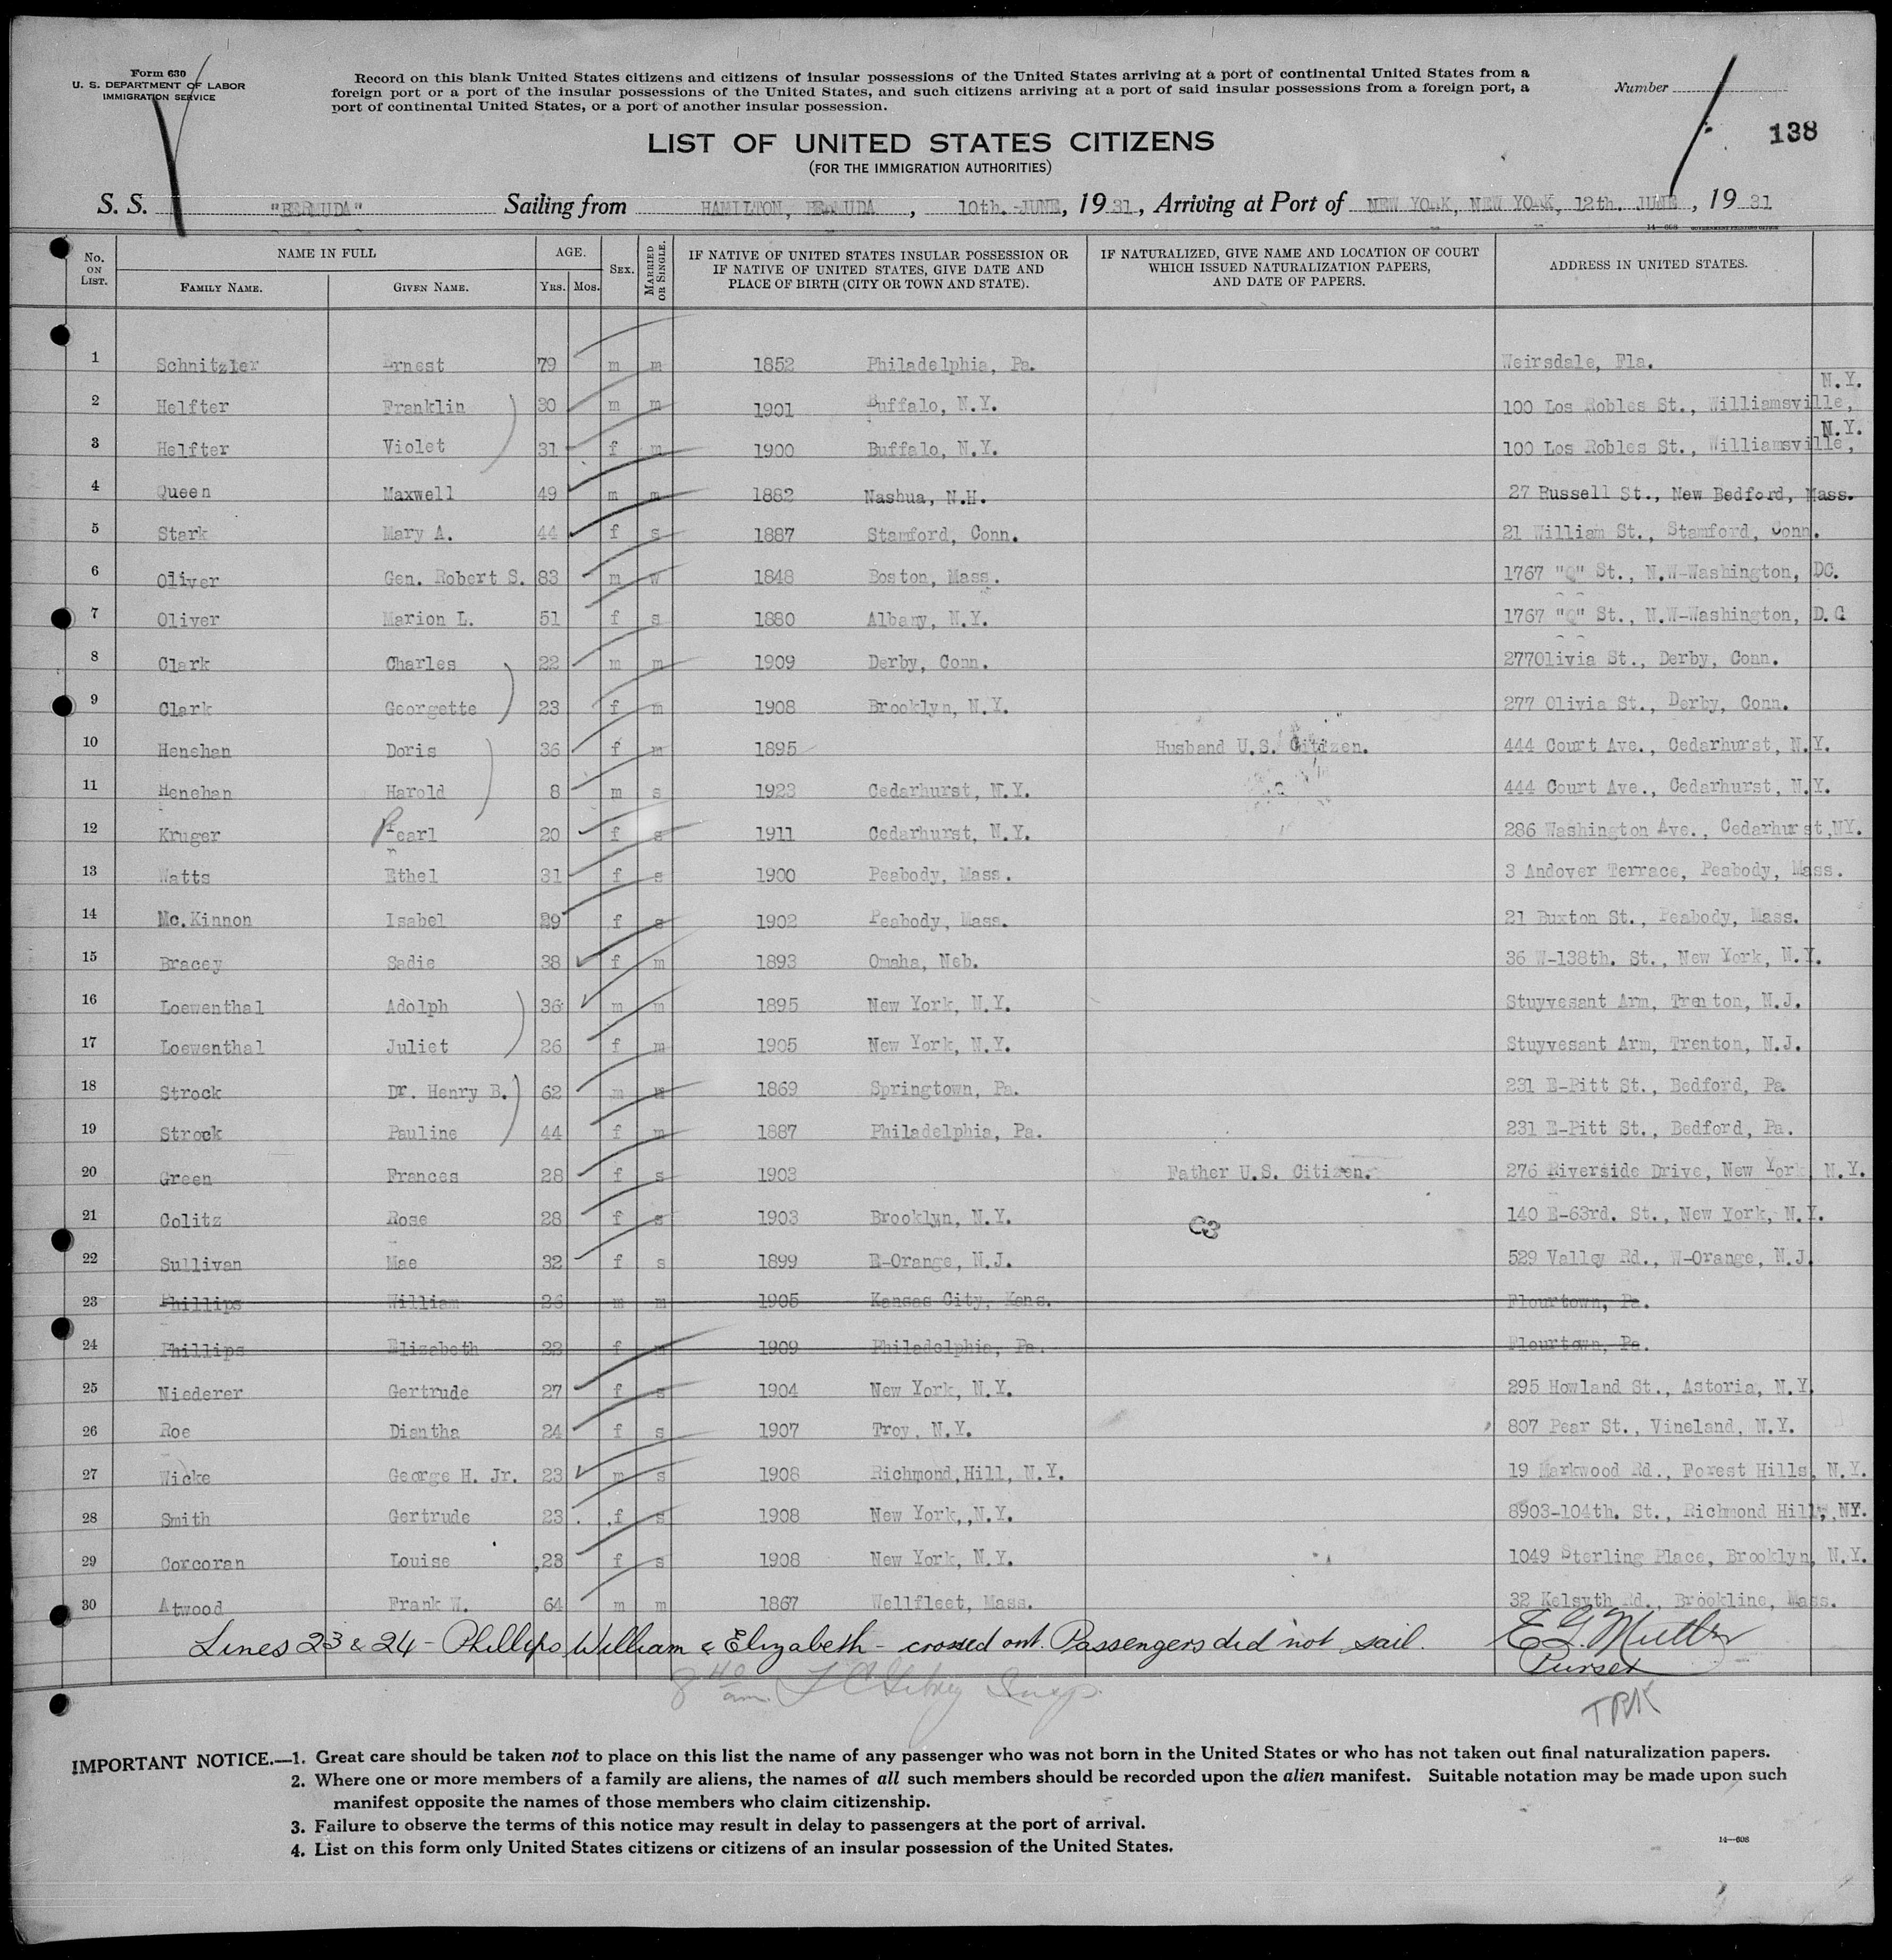 Form 630
U. S. DEPARTMENT OF LABOR
IMMIGRATION SERVICE
Record on this blank United States citizens and citizens of insular possessions of the United States arriving at a port of continental United States from a
foreign port or a port of the insular possessions of the United States, and such citizens arriving at a port of said insular possessions from a foreign port, a
port of continental United States, or a port of another insular possession.
Number
138
LIST OF UNITED STATES CITIZENS
(FOR THE IMMIGRATION AUTHORITIES)
S. S. "BERMUDA" Sailing from HAMILTON, BERMUDA, 10th. JUNE, 1931, Arriving at Port of NEW YORK, NEW YORK, 12th. JUNE, 1931
14—608 GOVERNMENT PRINTING OFFICE
No. ON LIST. NAME IN FULL FAMILY NAME. GIVEN NAME. AGE. YRS. MOS. SEX. MARRIED OR SINGLE. IF NATIVE OF UNITED STATES INSULAR POSSESSION OR IF NATIVE OF UNITED STATES, GIVE DATE AND PLACE OF BIRTH (CITY OR TOWN AND STATE). IF NATURALIZED, GIVE NAME AND LOCATION OF COURT WHICH ISSUED NATURALIZATION PAPERS, AND DATE OF PAPERS. ADDRESS IN UNITED STATES.
1 Schnitzler Ernest 79 m m 1852 Philadelphia, Pa. Weirsdale, Fla.
2 Helfter Franklin 30 m m 1901 Buffalo, N.Y. 100 Los Robles St., Williamsville, N.Y.
3 Helfter Violet 31 f m 1900 Buffalo, N.Y. 100 Los Robles St., Williamsville, N.Y.
4 Queen Maxwell 49 m m 1882 Nashua, N.H. 27 Russell St., New Bedford, Mass.
5 Stark Mary A. 44 f s 1887 Stamford, Conn. 21 William St., Stamford, Conn.
6 Oliver Gen. Robert S. 83 m w 1848 Boston, Mass. 1767 "Q" St., N.W-Washington, DC.
7 Oliver Marion L. 51 f s 1880 Albany, N.Y. 1767 "Q" St., N.W-Washington, D.C
8 Clark Charles 22 m m 1909 Derby, Conn. 277Olivia St., Derby, Conn.
9 Clark Georgette 23 f m 1908 Brooklyn, N.Y. 277 Olivia St., Derby, Conn.
10 Henehan Doris 36 f m 1895 Husband U.S. Citizen. 444 Court Ave., Cedarhurst, N.Y.
11 Henehan Harold 8 m s 1923 Cedarhurst, N.Y. 444 Court Ave., Cedarhurst, N.Y.
12 Kruger Pearl 20 f s 1911 Cedarhurst, N.Y. 286 Washington Ave., Cedarhurst,NY.
13 Watts Ethel 31 f s 1900 Peabody, Mass. 3 Andover Terrace, Peabody, Mass.
14 Mc.Kinnon Isabel 29 f s 1902 Peabody, Mass. 21 Buxton St., Peabody, Mass.
15 Bracey Sadie 38 f m 1893 Omaha, Neb. 36 W-138th. St., New York, N.Y.
16 Loewenthal Adolph 36 m m 1895 New York, N.Y. Stuyvesant Arm, Trenton, N.J.
17 Loewenthal Juliet 26 f m 1905 New York, N.Y. Stuyvesant Arm, Trenton, N.J.
18 Strock Dr. Henry B. 62 m m 1869 Springtown, Pa. 231 E-Pitt St., Bedford, Pa.
19 Strock Pauline 44 f m 1887 Philadelphia, Pa. 231 E-Pitt St., Bedford, Pa.
20 Green Frances 28 f s 1903 Father U.S. Citizen. 276 Riverside Drive, New York N.Y.
21 Golitz Rose 28 f s 1903 Brooklyn, N.Y. 140 E-63rd. St., New York, N.Y.
22 Sullivan Mae 32 f s 1899 E-Orange, N.J. 529 Valley Rd., W-Orange, N.J.
23 Phillips William 26 m m 1905 Kansas City, Kans. Flourtown, Pa.
24 Phillips Elizabeth 22 f m 1909 Philadelphia, Pa. Flourtown, Pa.
25 Niederer Gertrude 27 f s 1904 New York, N.Y. 295 Howland St., Astoria, N.Y.
26 Roe Diantha 24 f s 1907 Troy, N.Y. 807 Pear St., Vineland, N.Y.
27 Wicke George H. Jr. 23 m s 1908 Richmond,Hill, N.Y. 19 Markwood Rd., Forest Hills, N.Y.
28 Smith Gertrude 23 f s 1908 New York,,N.Y. 8903-104th. St., Richmond Hill, NY.
29 Corcoran Louise 23 f s 1908 New York, N.Y. 1049 Sterling Place, Brooklyn, N.Y.
30 Atwood Frank W. 64 m m 1867 Wellfleet, Mass. 32 Kelsyth Rd., Brookline, Mass.
Lines 23 & 24 - Phillips, William & Elizabeth - crossed out. Passengers did not sail.
Purser
8 40 am.
TRK
IMPORTANT NOTICE.—1. Great care should be taken not to place on this list the name of any passenger who was not born in the United States or who has not taken out final naturalization papers.
2. Where one or more members of a family are aliens, the names of all such members should be recorded upon the alien manifest. Suitable notation may be made upon such
manifest opposite the names of those members who claim citizenship.
3. Failure to observe the terms of this notice may result in delay to passengers at the port of arrival.
4. List on this form only United States citizens or citizens of an insular possession of the United States.
14—608